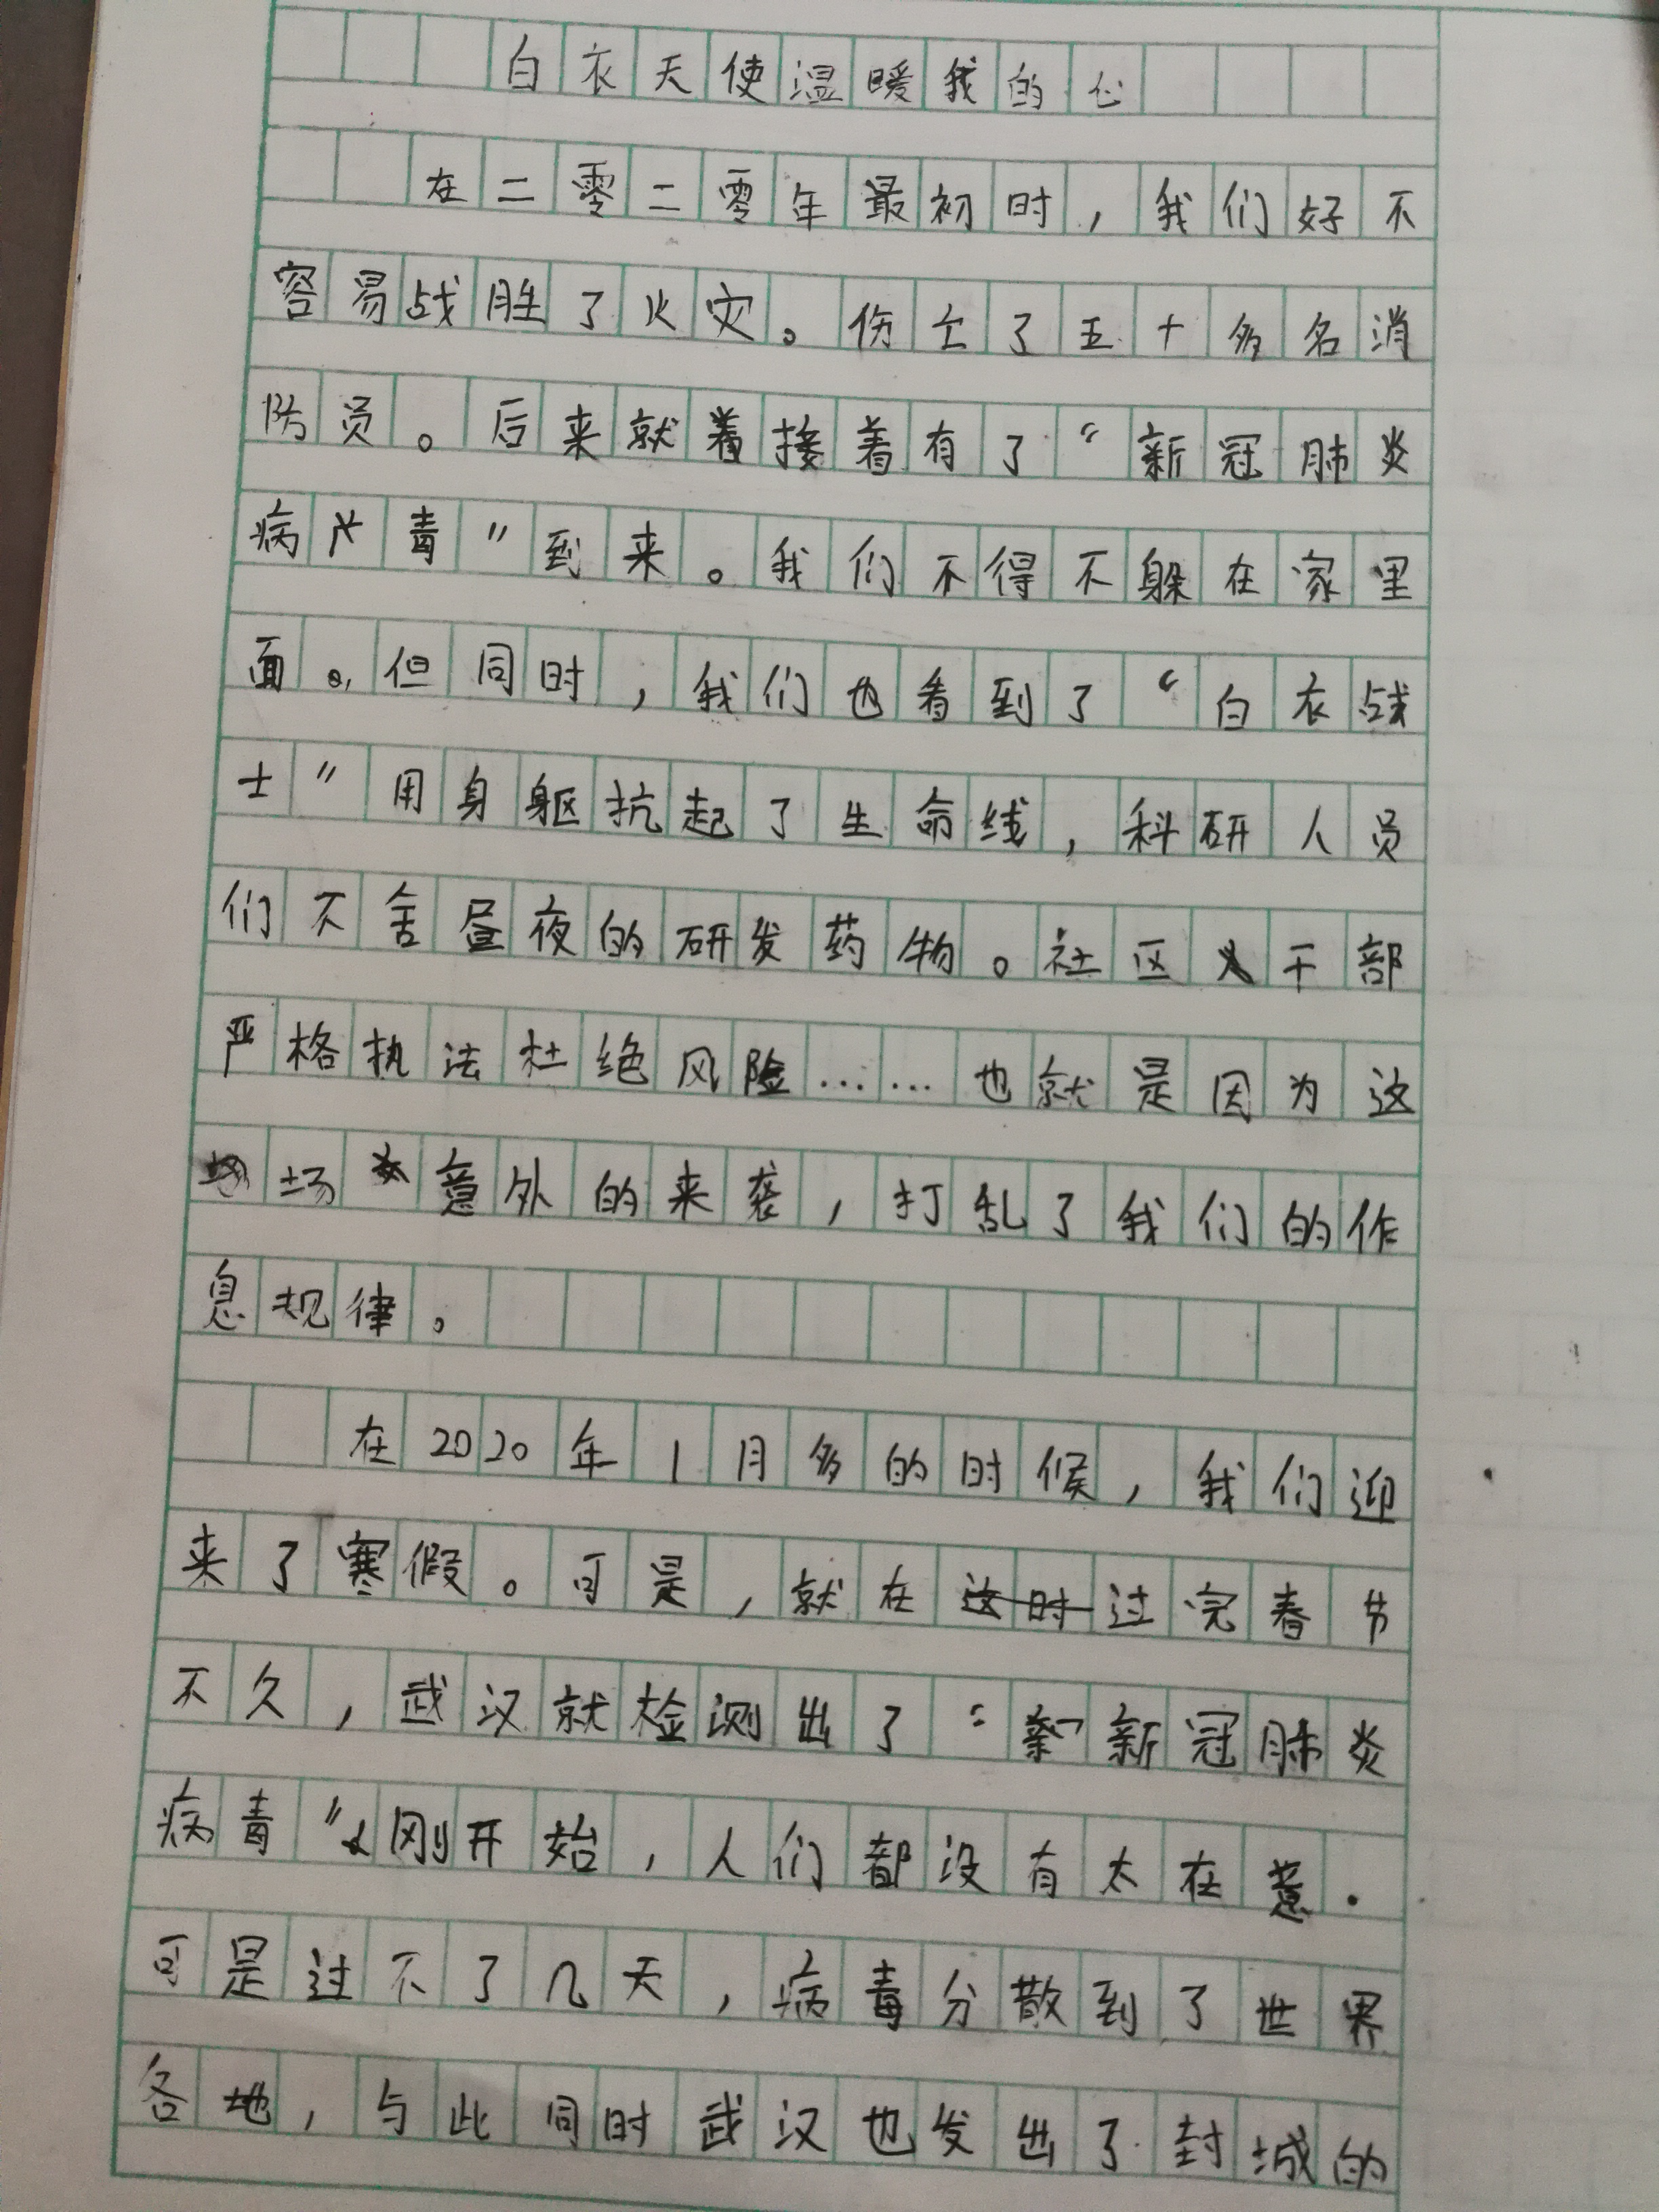 白衣天使温暖我的心
在二零二零年最初时，我们好不
容易战胜了火灾。伤亡了五十多名消
防员。后来就着接着有了“新冠肺炎
病毒”到来。我们不得不躲在家里
面。但同时，我们也看到了“白衣战
士”用身躯抗起了生命线，科研人员
们不舍昼夜的研发药物。社区干部
严格执法杜绝风险……也就是因为这
场意外的来袭，打乱了我们的作
息规律。
在2020年1月多的时候，我们迎
来了寒假。可是，就在过完春节
不久，武汉就检测出了“新冠肺炎
病毒”刚开始，人们都没有太在意.
可是过不了几天，病毒分散到了世界
各地，与此同时武汉也发出了封城的